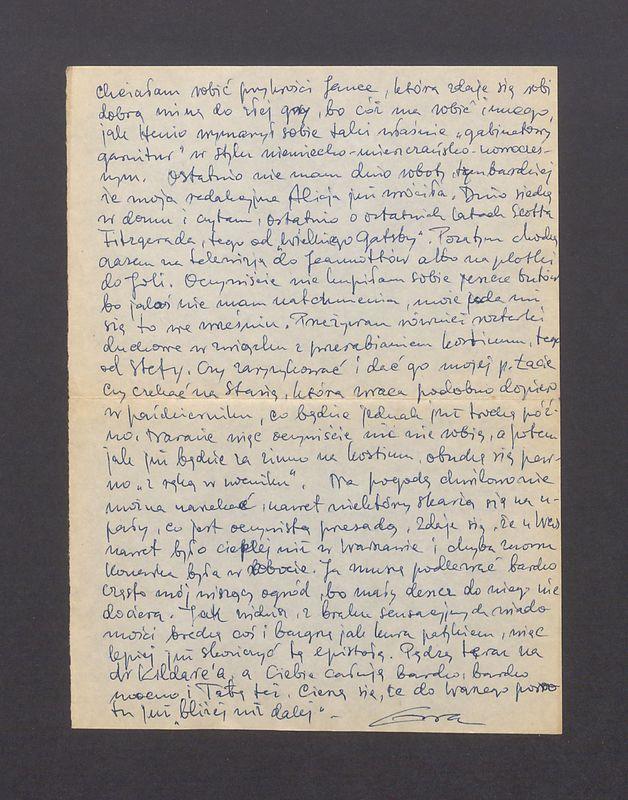 chciałam robić przykrości Jance, która zdaje się robi
dobrą minę do złej gry, bo cóż ma robić innego,
jak Henio wymarzył sobie taki właśnie „gabinetowy
garnitur" w stylu niemiecko-mieszczańsko-nowoczes-
nym. Ostatnio nie mam dużo roboty, tym bardziej
że moja redakcyjna Alicja już wróciła. Dużo siedzę
w domu i czytam, ostatnio o ostatnich latach Scotta
Fitzgeralda, tego od „Wielkiego Gatsby". Poza tym chodzę
czasem na telewizję do Jeannottów albo na plotki
do Joli. Oczywiście nie kupiłam sobie jeszcze butów
bo jakoś nie mam natchnienia, może uda mi
się to we wrześniu. Przeżywam również rozterki
duchowe w związku z przerabianiem kostiumu, tego
od Stefy. Czy zaryzykować i dać go mojej p. Łucie
czy czekać na Stasię, która wraca podobno dopiero
w październiku, co będzie jednak już trochę póź-
no. Narazie więc oczywiście nic nie robię, a potem
jak już będzie za zimno na kostium, obudzę się pew-
no „z ręką w nocniku". Na pogodę chwilowo nie
można narzekać, nawet niektórzy skarżą się na u-
pały, co jest oczywistą przesadą. Zdaje się, że u Was
nawet było cieplej niż w Warszawie i chyba znowu
konewka była w robocie. Ja muszę podlewać bardzo
często mój wiszący ogród, bo mały deszcz do niego nie
dociera. Jak widzisz, z braku sensacyjnych wiado
mości bredzę coś i bazgrzę jak kura patykiem, więc
lepiej już skończyć tę epistołę. Pędzę teraz na
dr Kildare'a, a Ciebie całuję bardzo, bardzo
mocno i Tatę też. Cieszę się, że do Waszego powro
tu już „bliżej niż dalej".